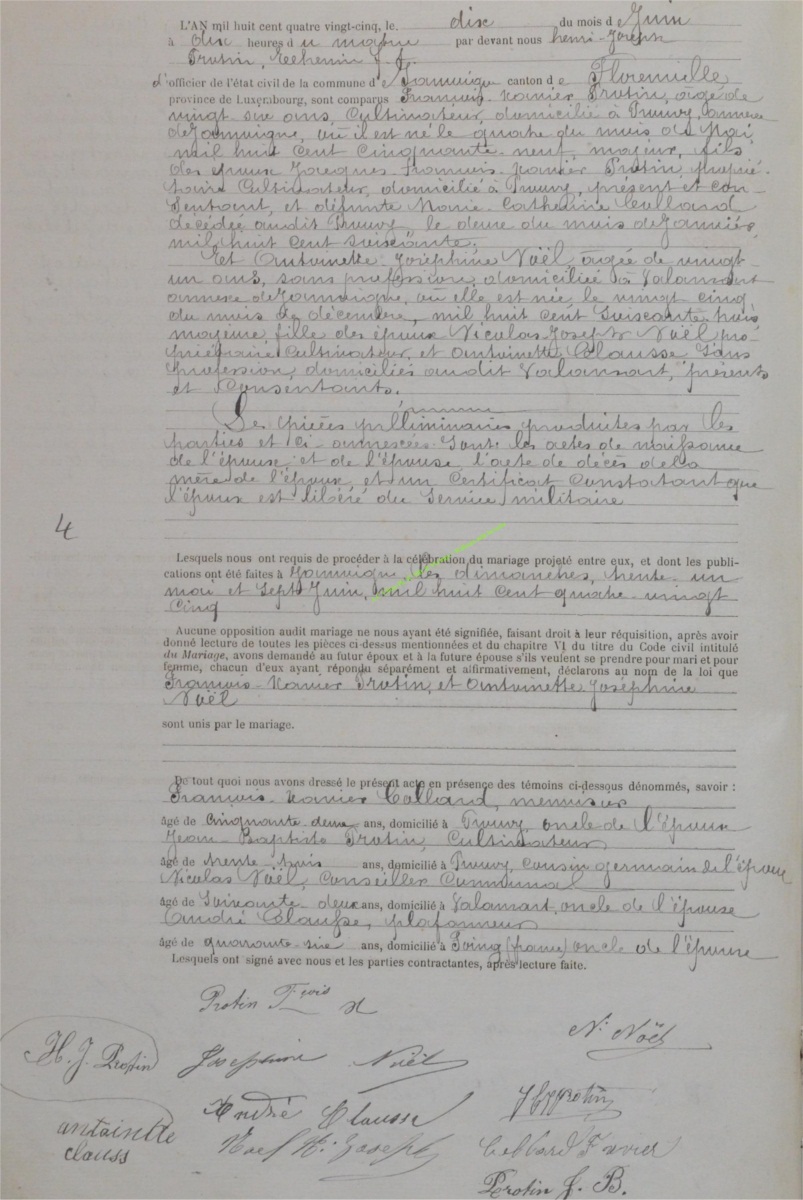 L'AN mil huit cent quatre vingt-cinq, le dix du mois de Juin
à dix heures du matin par devant nous henri-Joseph
Protin, Echevin f.f.
d'officier de l'état civil de la commune de Jamoigne canton de Florenville
province de Luxembourg, sont comparus François-Xavier Protin, âgé de
vingt six ans, Cultivateur, domicilié à Prouvy, annexe
de Jamoigne, où il est né le quatre du mois de Mai
mil huit cent cinquante-neuf, majeur, fils
des époux Jacques-François-Xavier Protin, proprié-
taire Cultivateur, domicilié à Prouvy, présent et con-
sentant, et défunte Marie-Catherine Collard
décédée audit Prouvy, le deux du mois de Janvier
mil huit cent soixante.
Et Antoinette Joséphine Noël âgée de vingt-
un ans, sans profession, domiciliée à Valansart
annexe de Jamoigne, où elle est née le vingt cinq
du mois de décembre, mil huit cent soixante trois
majeure, fille des époux Nicolas-Joseph Noël pro-
priétaire Cultivateur, et Antoinette Clausse Sans
profession, domiciliés audit Valansart, présents
et Consentants.
Les pièces préliminaires produites par les
parties et ci annexées Sont: les actes de naissance
de l'époux et de l'épouse, l'acte de décès de la
mère de l'époux, et un Certificat Constatant que
l'époux est libéré du Service militaire
4
Lesquels nous ont requis de procéder à la célébration du mariage projeté entre eux, et dont les publi-
cations ont été faites à Jamoigne, les dimanches, trente-un
mai et Sept Juin, mil huit cent quatre-vingt
Cinq
Aucune opposition audit mariage ne nous ayant été signifiée, faisant droit à leur réquisition, après avoir
donné lecture de toutes les pièces ci-dessus mentionnées et du chapitre VI du titre du Code civil intitulé
du Mariage, avons demandé au futur époux et à la future épouse s'ils veulent se prendre pour mari et pour
femme, chacun d'eux ayant répondu séparément et affirmativement, déclarons au nom de la loi que
François-Xavier Protin, et Antoinette Joséphine
Noël
sont unis par le mariage.
De tout quoi nous avons dressé le présent acte en présence des témoins ci-dessous dénommés, savoir :
François-Xavier Collard, menuisier
âgé de Cinquante-deux ans, domicilié à Prouvy, oncle de l'époux
Jean Baptiste Protin, Cultivateur
âgé de trente trois ans, domicilié à Prouvy, Cousin germain de l'époux
Nicolas Noël, Conseiller Communal
âgé de Soixante-deux ans, domicilié à Valansart, oncle de l'épouse
André Clausse, plafonneur
âgé de quarante-six ans, domicilié à Poing (france) oncle de l'épouse
Lesquels ont signé avec nous et les parties contractantes, après lecture faite.
Protin Fçois X
N. Noël
H. J. Protin
Joséphine Noël
André Clausse
antoinette
clauss
Noel N. Joseph
Collard Xavier
Protin J. B.